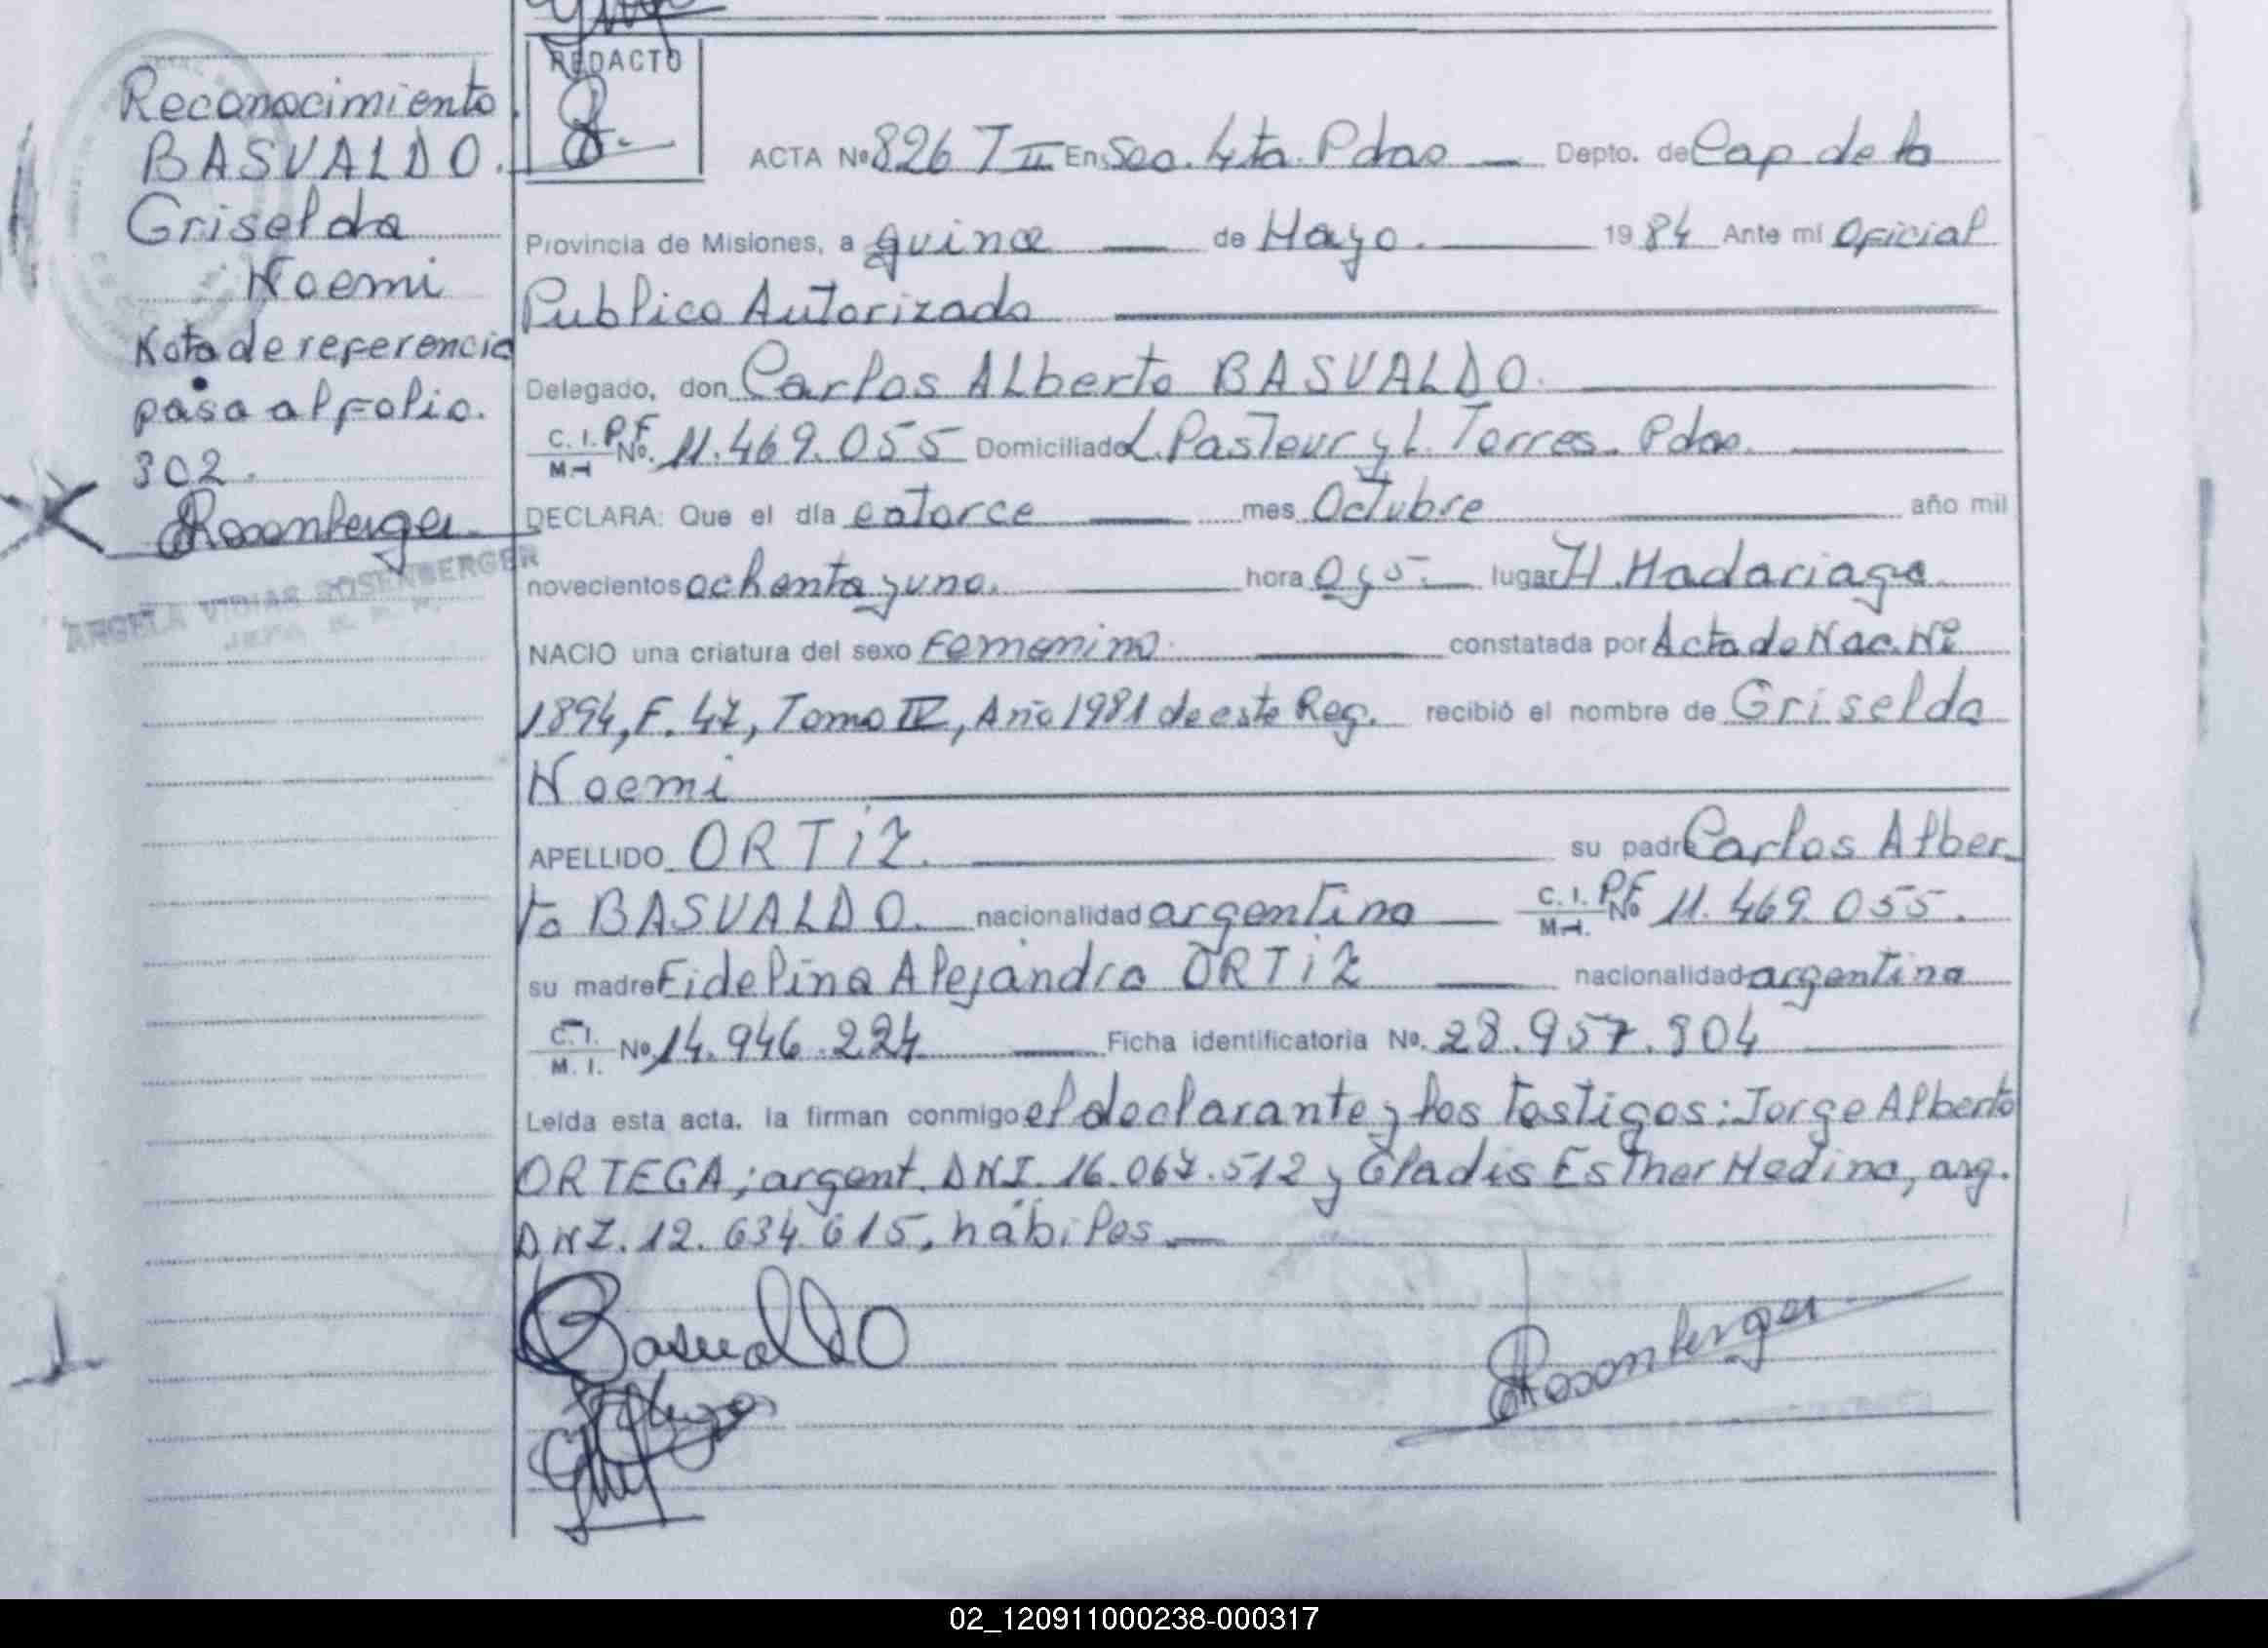 Reconocimiento
BASUALDO.
Griselda
Noemi
Nota de referencia
pasa al folio.
302.
Rosenberger
ANGELA VIDIAS ROSENBERGER
REDACTO
ACTA Nº 826 T II En Sec. 4ta. Pdas Depto. de Cap de la
Provincia de Misiones, a quince de Mayo. 1984 Ante mi Oficial
Publico Autorizado
Delegado, don Carlos Alberto BASUALDO.
C. I. P.F. M.I. No. 11.469.055 Domiciliado L. Pasteur y L. Torres. Pdas.
DECLARA: Que el día catorce mes Octubre año mil
novecientos ochenta y uno. hora 0 y 5 lugar H. Madariaga.
NACIO una criatura del sexo femenino constatada por Acta de Nac. Nº
1894, F. 47, Tomo IV, Año 1981 de este Reg. recibió el nombre de Griselda
Noemi
APELLIDO ORTIZ. su padre Carlos Alber
to BASUALDO. nacionalidad argentina C. I. P.F. M.I. Nº 11.469.055.
su madre Fidelina Alejandra ORTIZ nacionalidad argentina
C. I. M. I. Nº 14.946.224 Ficha identificatoria No. 28.957.904
Leída esta acta, la firman conmigo el declarante y los testigos: Jorge Alberto
ORTEGA; argent. DNI. 16.067.512 y Gladis Esther Medina, arg.
DNI. 12.634.615, hábiles.
Basualdo
Rosenberger
02_120911000238-000317